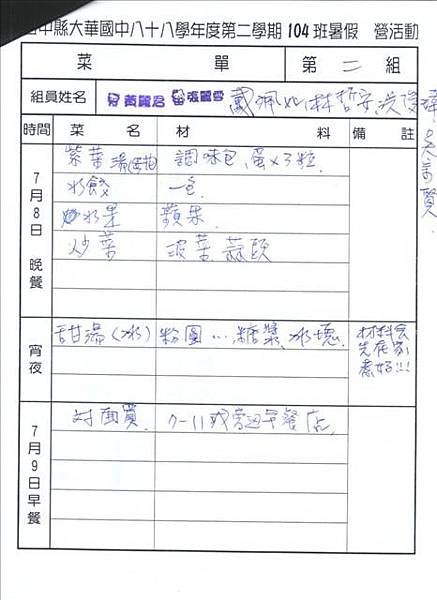 中縣大華國中八十八學年度第二學期104班暑假 營活動
菜單 第二組
組員姓名 黃麗君 張麗雪 戴珮如 林哲安
時間 菜名 材料 備註
7月8日晚餐
紫菜湯 調味包、蛋x3粒
水餃 一包
水果 蘋果
炒菜 菠菜、蒜頭
宵夜 甜湯(冰) 粉圓…糖漿、冰塊 材料會先在家煮好!!!
7月9日早餐 對面買 7-11或旁邊早餐店